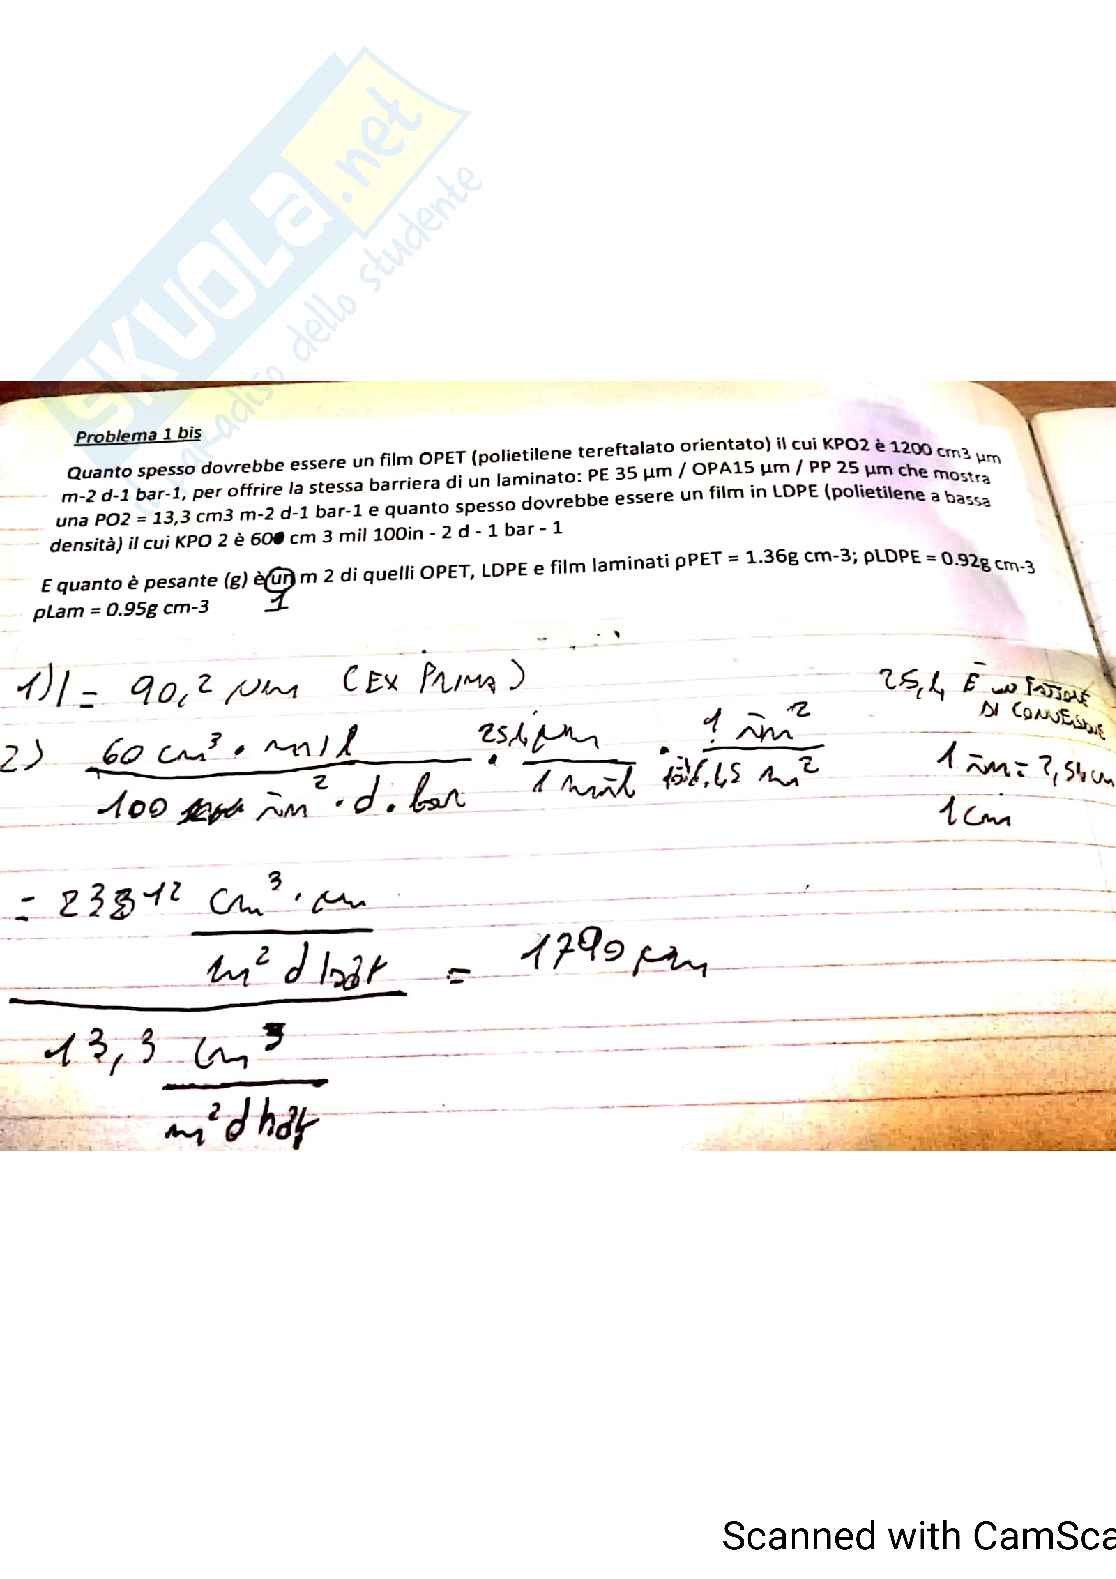 SKUOLA.net
paradiso dello studente
Problema 1 bis
Quanto spesso dovrebbe essere un film OPET (polietilene tereftalato orientato) il cui KPO2 è 1200 cm3 µm
m-2 d-1 bar-1, per offrire la stessa barriera di un laminato: PE 35 µm / OPA15 µm / PP 25 µm che mostra
una PO2 = 13,3 cm3 m-2 d-1 bar-1 e quanto spesso dovrebbe essere un film in LDPE (polietilene a bassa
densità) il cui KPO 2 è 60 cm 3 mil 100in - 2 d - 1 bar - 1
E quanto è pesante (g) è un m 2 di quelli OPET, LDPE e film laminati ρPET = 1.36g cm-3; ρLDPE = 0.92g cm-3
1
ρLam = 0.95g cm-3
1) l = 90,2 µm (EX PRIMA)
25,4 È un FATTORE
DI CONVERSIONE
2) 60 cm³ · mil / 100 in² · d · bar · 25,4 µm / 1 mil · 1 in² / m²
1 in = 2,54 cm
1 cm
= 23812 cm³ · µm / m² d bar
= 1790 µm
13,3 cm³ / m² d bar
Scanned with CamSca